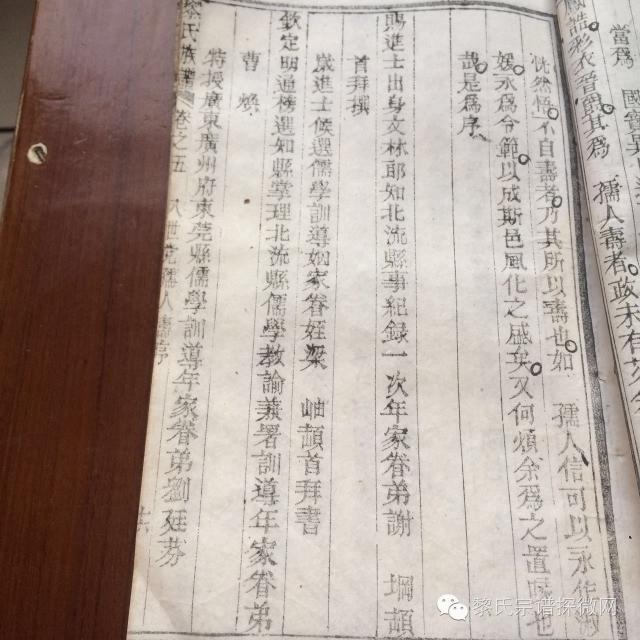 當為　國寶
孺人壽者故未有
恍然悟不自壽者乃其所以壽也如　孺人信可以永
娛永為令範以成斯邑風化之盛矣又何煩余為之置喙也
哉是為序
賜進士出身文林郎知北流縣事紀錄一次年家眷弟謝　堈頓
首拜撰
歲進士候選儒學訓導姻家眷姪粱　岫頓首拜書
欽定明通榜選知縣掌理北流縣儒學教諭兼署訓導年家眷弟
曹　燦
特授廣東廣州府東莞縣儒學訓導年家眷弟劉廷芬
氏族譜　卷之五
黎氏宗谱探微网